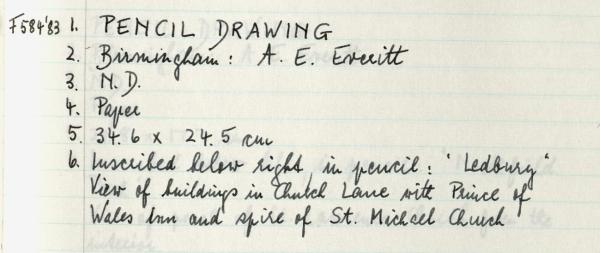 F584'83 1. PENCIL DRAWING
2. Birmingham: A. E. Everitt
3. N.D.
4. Paper
5. 34.6 x 24.5 cm
6. Inscribed below right, in pencil: 'Ledbury'
View of buildings in Church Lane with Prince of
Wales Inn and spire of St. Michael Church